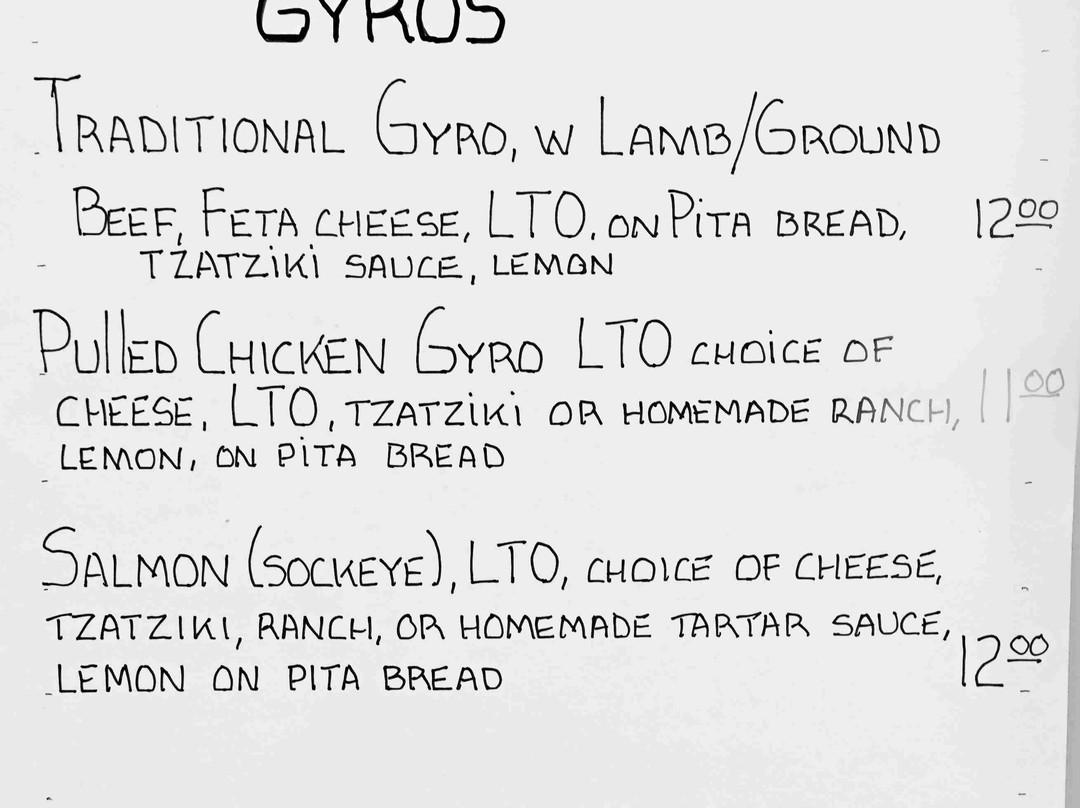 GYROS
TRADITIONAL GYRO, W LAMB/GROUND
BEEF, FETA CHEESE, LTO, ON PiTA BREAD, 12⁰⁰
TZATZiKi SAUCE, LEMON
PullED CHICKEN GYRO LTO CHOiCE OF
CHEESE, LTO, TZATZiKi OR HOMEMADE RANCH, 11⁰⁰
LEMON, ON PiTA BREAD
SALMON (SOCKEYE), LTO, CHOICE OF CHEESE,
TZATZIKI, RANCH, OR HOMEMADE TARTAR SAUCE,
LEMON ON PITA BREAD 12⁰⁰